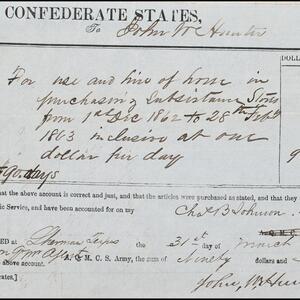 CONFEDERATE STATES,
To John W Hunter
DOLLA
For use and hire of horse in
purchasing Subsistance Stores
from 1st Dec 1862 to 28th Feb
1863 inclusive at one
dollar per day
90 days
9
that the above account is correct and just, and that the articles were purchased as stated, and
ic Service, and have been accounted for on my
Chas B Johnson
ED at Sherman Texas the 31st of March
A. & M. C. S. Army, the sum of Ninety
dollars and
cates.]
John W Hun